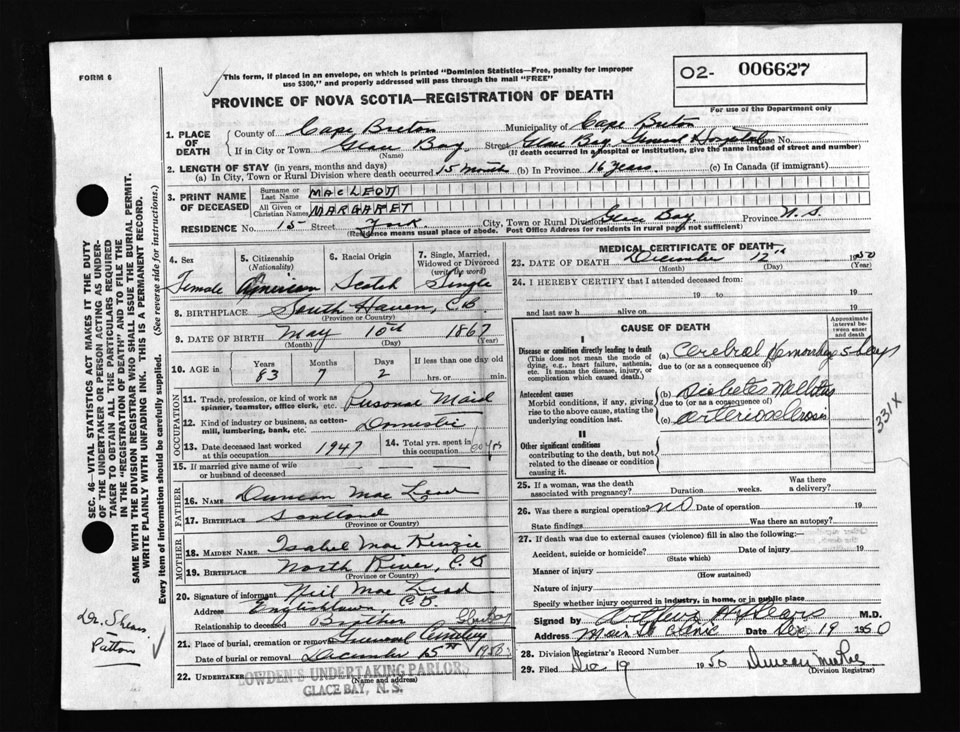 FORM 6
This form, if placed in an envelope, on which is printed "Dominion Statistics—Free, penalty for improper
use $300," and properly addressed will pass through the mail "FREE"
O2- 006627
For use of the Department only
PROVINCE OF NOVA SCOTIA—REGISTRATION OF DEATH
1. PLACE OF DEATH County of Cape Breton Municipality of Cape Breton
If in City or Town Glace Bay (Name) Street Glace Bay General Hospital House No.
(If death occurred in a hospital or institution, give the name instead of street and number)
2. LENGTH OF STAY (in years, months and days)
(a) In City, Town or Rural Division where death occurred 15 months (b) In Province 16 years (c) In Canada (if immigrant)
3. PRINT NAME OF DECEASED Surname or Last Name MACLEOD
All Given or Christian Names MARGARET
RESIDENCE No. 15 Street York City, Town or Rural Division Glace Bay Province N.S.
(Residence means usual place of abode. Post Office Address for residents in rural parts not sufficient)
4. Sex Female
5. Citizenship (Nationality) American
6. Racial Origin Scotch
7. Single, Married, Widowed or Divorced (write the word) Single
8. BIRTHPLACE South Haven, C.B.
(Province or Country)
9. DATE OF BIRTH May 10th 1867
(Month) (Day) (Year)
10. AGE in Years 83 Months 7 Days 2 If less than one day old hrs. or min.
OCCUPATION
11. Trade, profession, or kind of work as spinner, teamster, office clerk, etc. Personal Maid
12. Kind of industry or business, as cotten-mill, lumbering, bank, etc. Domestic
13. Date deceased last worked at this occupation. 1947
14. Total yrs. spent in this occupation
15. If married give name of wife or husband of deceased
FATHER
16. NAME Duncan Mac Leod
17. BIRTHPLACE Scotland
(Province or Country)
MOTHER
18. MAIDEN NAME. Isabel Mac Kenzie
19. BIRTHPLACE North River, C.B
(Province or Country)
20. Signature of informant Neil Mac Leod
Address Englishtown, C.B.
Relationship to deceased Brother
21. Place of burial, cremation or removal Greenwood Cemetery Glace Bay
Date of burial or removal December 15th 1950
22. UNDERTAKER LOWDEN'S UNDERTAKING PARLORS
(Name and address)
GLACE BAY, N.S.
MEDICAL CERTIFICATE OF DEATH
23. DATE OF DEATH December 12th 1950
(Month) (Day) (Year)
24. I HEREBY CERTIFY that I attended deceased from:
19 to 19
and last saw h alive on 19
CAUSE OF DEATH
Approximate interval between onset and death
I
Disease or condition directly leading to death
(This does not mean the mode of dying, e.g., heart failure, asthenia, etc. It means the disease, injury, or complication which caused death.)
(a) Cerebral Hemorrhage 5 days
due to (or as a consequence of)
Antecedent causes
Morbid conditions, if any, giving rise to the above cause, stating the underlying condition last.
(b) Diabetes Mellitus
due to (or as a consequence of)
(c) arteriosclerosis
331X
II
Other significant conditions
contributing to the death, but not related to the disease or condition causing it.
25. If a woman, was the death associated with pregnancy? Duration weeks. Was there a delivery?
26. Was there a surgical operation no Date of operation 19
State findings Was there an autopsy?
27. If death was due to external causes (violence) fill in also the following:—
Accident, suicide or homicide? Date of injury 19
(State which)
Manner of injury
(How sustained)
Nature of injury
Specify whether injury occurred in industry, in home, or in public place
Signed by M.D.
Address Main St Clinic Date Dec 19 1950
28. Division Registrar's Record Number
29. Filed Dec 19 1950 Duncan
(Division Registrar)
SEC. 46—VITAL STATISTICS ACT MAKES IT THE DUTY
OF THE UNDERTAKER OR PERSON ACTING AS UNDER-
TAKER TO OBTAIN ALL THE PARTICULARS REQUIRED
IN THE "REGISTRATION OF DEATH" AND TO FILE THE
SAME WITH THE DIVISION REGISTRAR WHO SHALL ISSUE THE BURIAL PERMIT.
WRITE PLAINLY WITH UNFADING INK. THIS IS A PERMANENT RECORD.
Every item of information should be carefully supplied. (See reverse side for instructions.)
Dr.
Patton